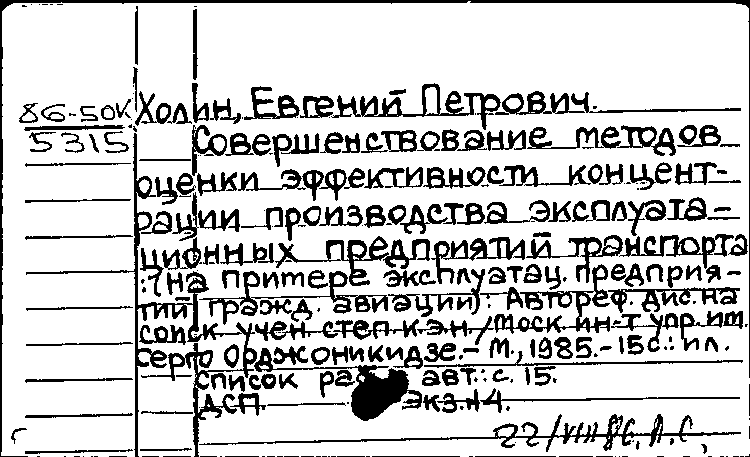 86-50К Холин, Евгений Петрович.
5315 Совершенствование методов
оценки эффективности концент-
рации производства эксплуата-
ционных предприятий транспорта
: (на примере эксплуатац. предприя-
тий гражд. авиации): Автореф. дис. на
соиск. учен. степ. к.э.н. / Моск. ин-т упр. им.
Серго Орджоникидзе.- М., 1985.-15с.: ил.
Список раб. авт.: с. 15.
ДСП. Экз.44.
22/VIII 86. Л.С.